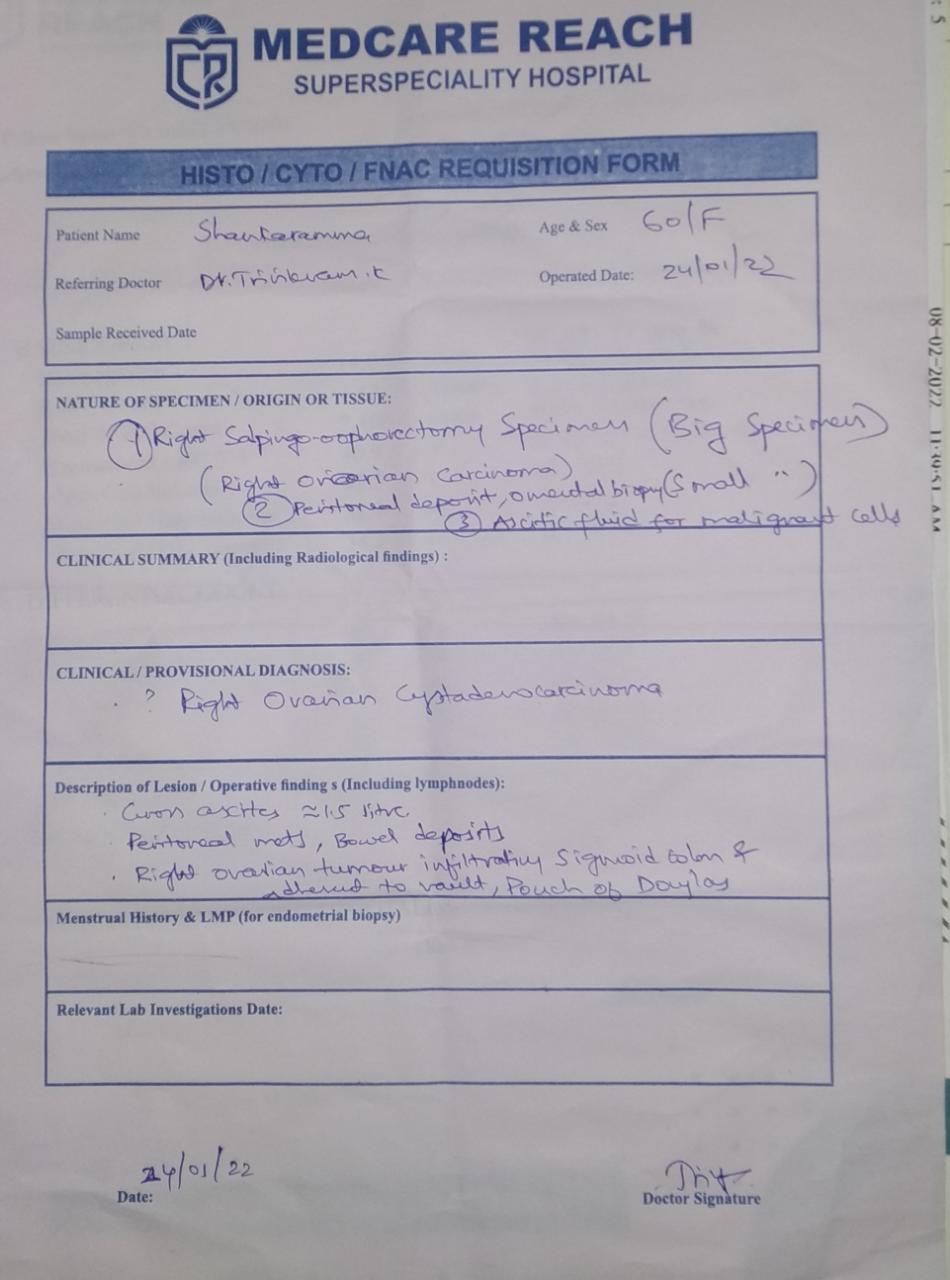 MEDCARE REACH
SUPERSPECIALITY HOSPITAL
HISTO / CYTO / FNAC REQUISITION FORM
Patient Name Shankaramma Age & Sex 60/F
Referring Doctor Dr. K Operated Date: 24/01/22
Sample Received Date
NATURE OF SPECIMEN / ORIGIN OR TISSUE:
1 Right Salpingo-oophorectomy Specimen (Big Specimen)
(Right Ovarian Carcinoma)
2 Peritoneal deposit, omental biopsy (Small " )
3 Ascitic fluid for malignant cells
CLINICAL SUMMARY (Including Radiological findings) :
CLINICAL / PROVISIONAL DIAGNOSIS:
? Right Ovarian Cystadenocarcinoma
Description of Lesion / Operative finding s (Including lymphnodes):
ascites ≈ 1.5 litre
Peritoneal mets, Bowel deposits
Right ovarian tumour infiltrating Sigmoid colon &
adhered to vault, Pouch of Douglas
Menstrual History & LMP (for endometrial biopsy)
Relevant Lab Investigations Date:
24/01/22
Date: Doctor Signature
08-02-2022 11:39:51 AM